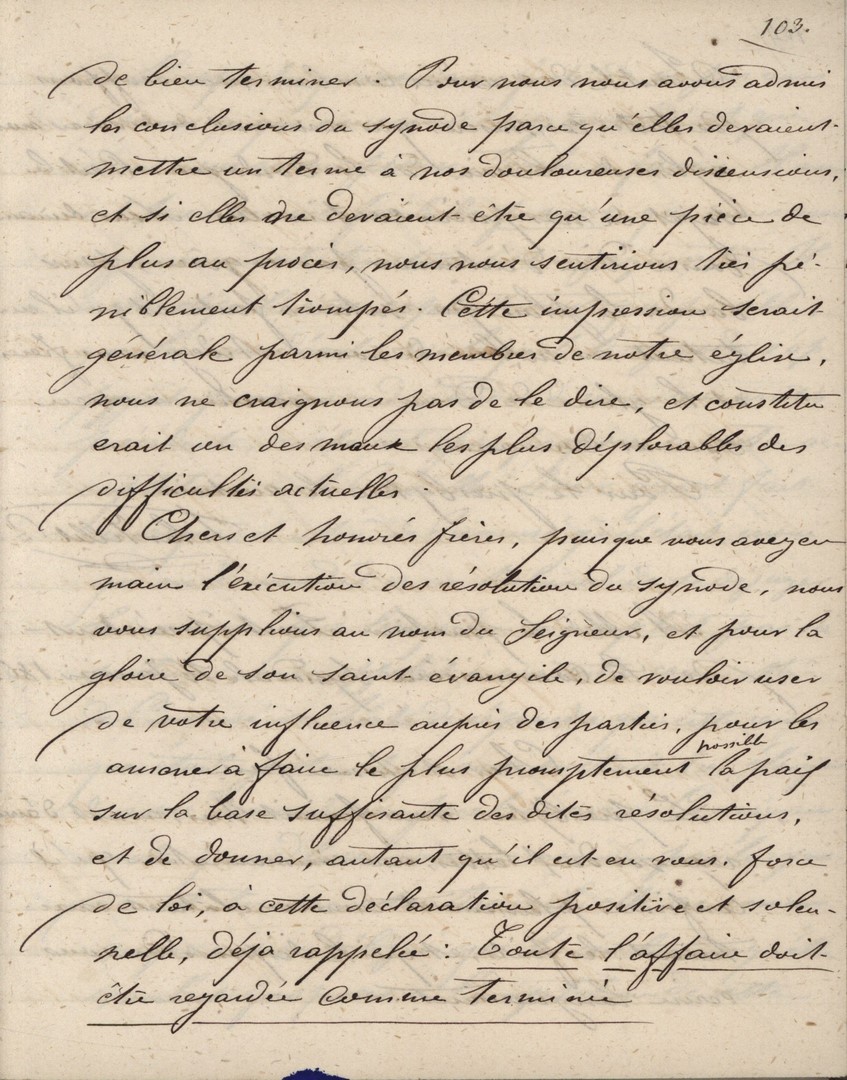 103.
de bien terminer. Pour nous nous avons admis
les conclusions du synode parce qu'elles devaient
mettre un terme à nos douloureuses dissensions,
et si elles ne devaient être qu'une pièce de
plus au procès, nous nous sentirions très pé-
niblement trompés. Cette impression serait
générale parmi les membres de notre église,
nous ne craignons pas de le dire, et constitu
erait un des maux les plus déplorables des
difficultés actuelles.
Chers et honorés frères, puisque vous avez en
main l'éxécution des résolution du synode, nous
vous supplions au nom du Seigneur, et pour la
gloire de son saint évangile, de vouloir user
de votre influence auprès des parties, pour les
amener à faire le plus promptement possible la paix
sur la base suffisante des dites résolutions,
et de donner, autant qu'il est en vous, force
de loi, à cette déclaration positive et solen-
nelle, déja rappelée : Toute l'affaire doit
être regardée comme terminée